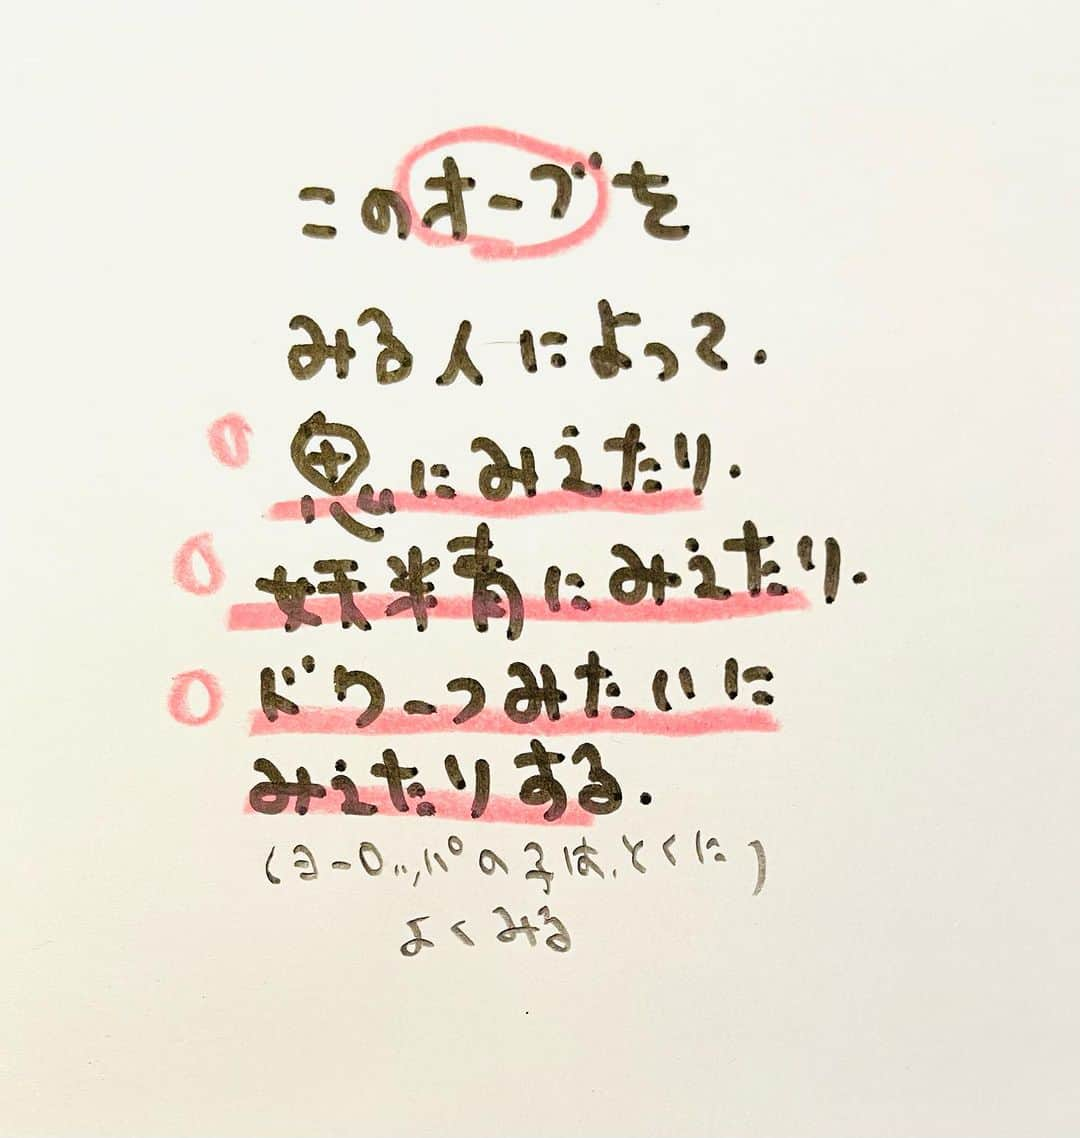 このオーブを
みる人によって.
思にみえたり.
妖精にみえたり.
ドワーフみたいに
みえたりする.
(ヨーロッパの子は、とくに)
よくみる